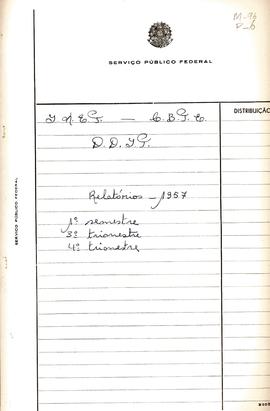 M-96
P-6
SERVIÇO PÚBLICO FEDERAL
DISTRIBUIÇÃO
I N E P. — C. B. P. E.
D. D. I P.
Relatórios - 1957
1º semestre
3º trimestre
4º trimestre
SERVIÇO PÚBLICO FEDERAL